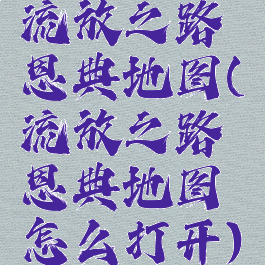 流放之路
恩典地图(
流放之路
恩典地图
怎么打开)